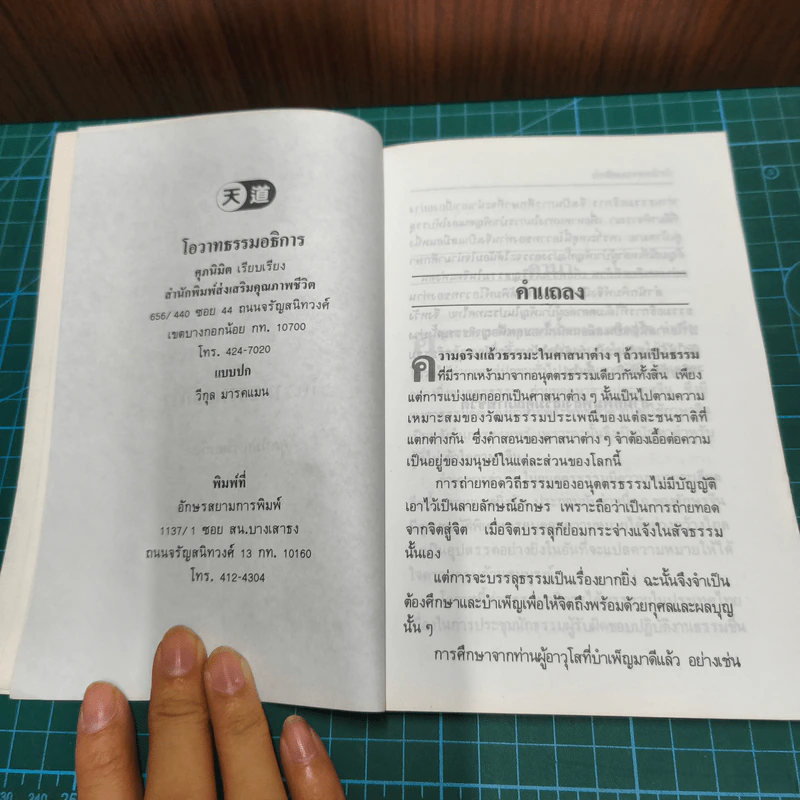 天道
โอวาทธรรมอธิการ
ศุภนิมิต เรียบเรียง
สำนักพิมพ์ส่งเสริมคุณภาพชีวิต
656/440 ซอย 44 ถนนจรัญสนิทวงศ์
เขตบางกอกน้อย กท. 10700
โทร. 424-7020
แบบปก
วีกุล มารคแมน
พิมพ์ที่
อักษรสยามการพิมพ์
1137/1 ซอย สน.บางเสาธง
ถนนจรัญสนิทวงศ์ 13 กท. 10160
โทร. 412-4304
คำแถลง
ความจริงแล้วธรรมะในศาสนาต่าง ๆ ล้วนเป็นธรรม
ที่มีรากเหง้ามาจากอนุตตรธรรมเดียวกันทั้งสิ้น เพียง
แต่การแบ่งแยกออกเป็นศาสนาต่าง ๆ นั้นเป็นไปตามความ
เหมาะสมของวัฒนธรรมประเพณีของแต่ละชนชาติที่
แตกต่างกัน ซึ่งคำสอนของศาสนาต่าง ๆ จำต้องเอื้อต่อความ
เป็นอยู่ของมนุษย์ในแต่ละส่วนของโลกนี้
การถ่ายทอดวิถีธรรมของอนุตตรธรรมไม่มีบัญญัติ
เอาไว้เป็นลายลักษณ์อักษร เพราะถือว่าเป็นการถ่ายทอด
จากจิตสู่จิต เมื่อจิตบรรลุก็ย่อมกระจ่างแจ้งในสัจธรรม
นั้นเอง
แต่การจะบรรลุธรรมเป็นเรื่องยากยิ่ง ฉะนั้นจึงจำเป็น
ต้องศึกษาและบำเพ็ญเพื่อให้จิตถึงพร้อมด้วยกุศลและผลบุญ
นั้น ๆ
การศึกษาจากท่านผู้อาวุโสที่บำเพ็ญมาดีแล้ว อย่างเช่น